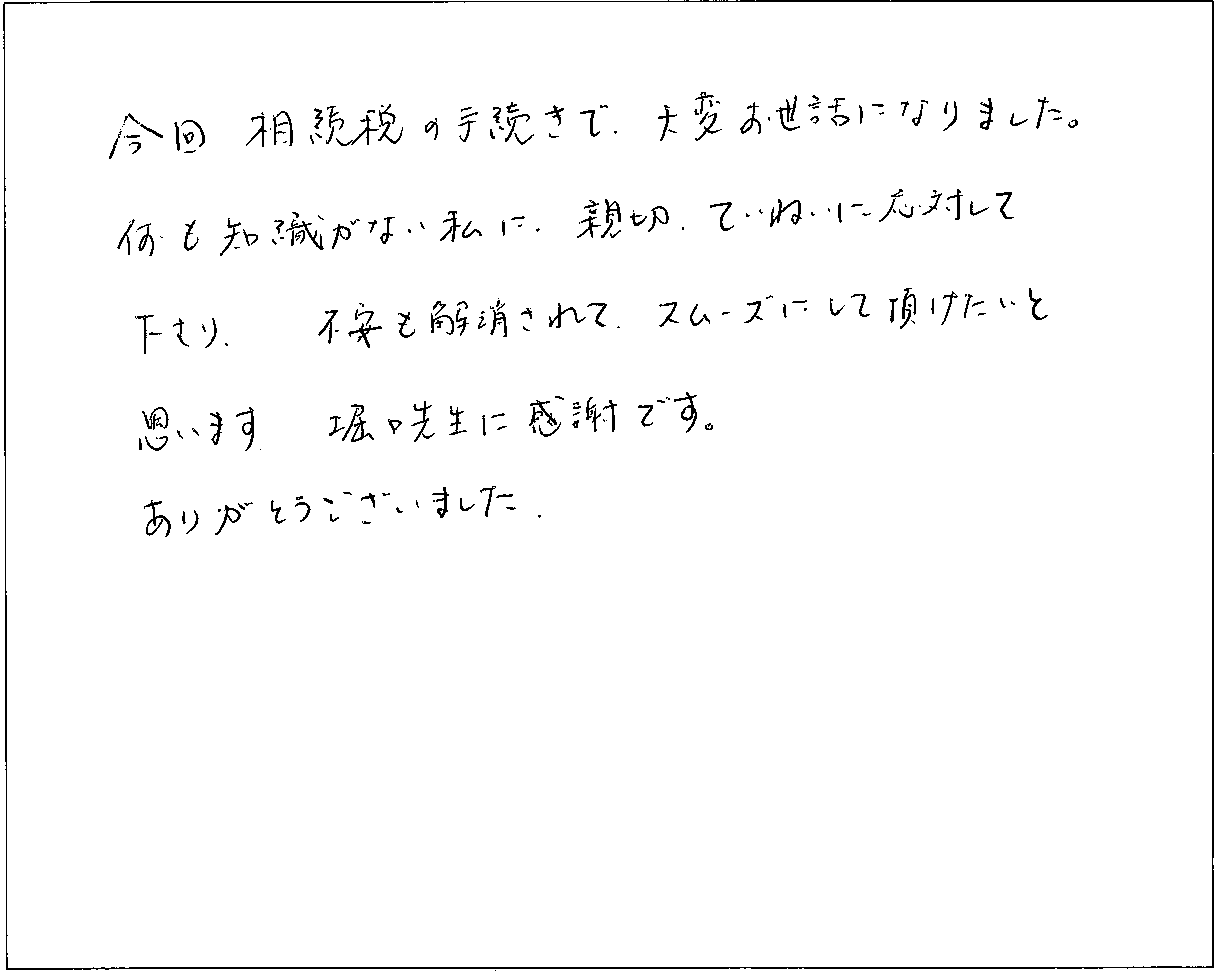 今回 相続税の手続きで、大変お世話になりました。
何も知識がない私に、親切、ていねいに応対して
下さり、 不安も解消されて、スムーズにして頂けたいと
思います 堀口先生に感謝です。
ありがとうございました.